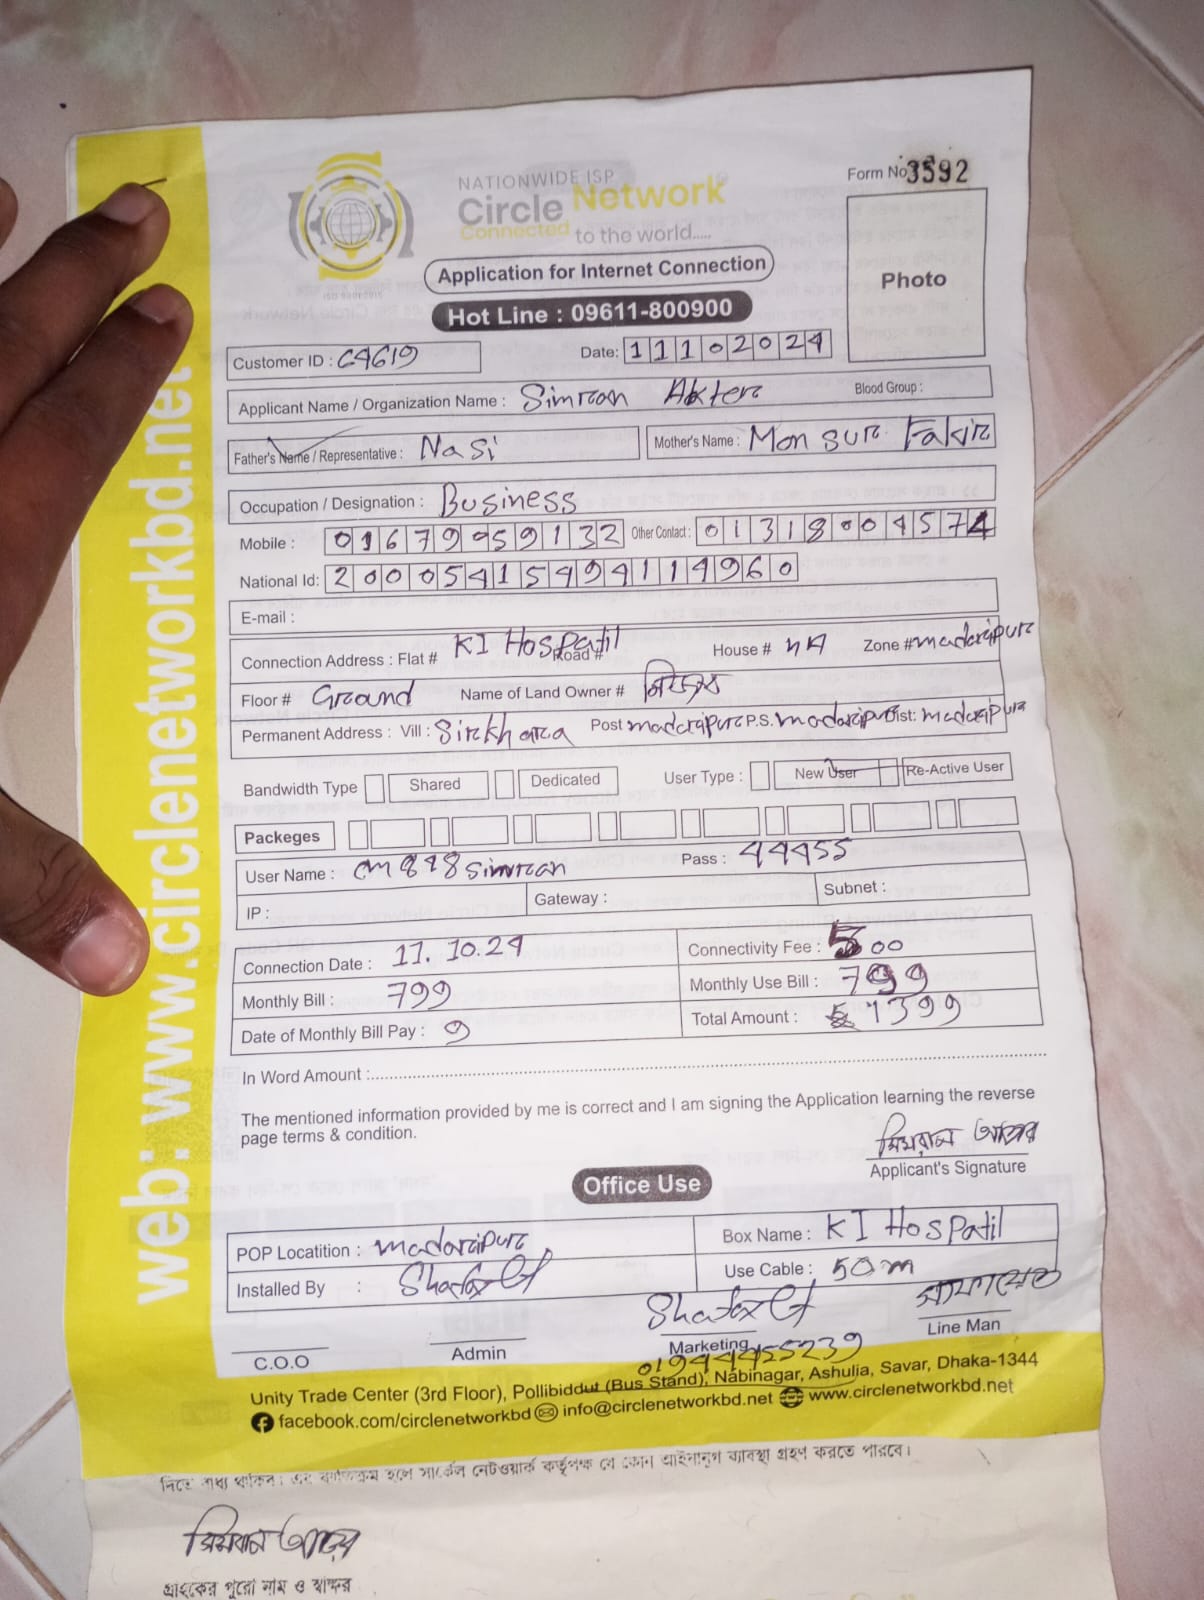 Form No 3592
NATIONWIDE ISP
Circle Network
Connected to the world.....
ISO 9001:2015
Photo
Application for Internet Connection
Hot Line : 09611-800900
Customer ID : C4619 Date: 11102024
Applicant Name / Organization Name : Simran Akter Blood Group :
Father's Name / Representative : Nasi Mother's Name : Monsur Fakir
Occupation / Designation : Business
Mobile : 01679959132 Other Contact : 01318004574
National Id: 20005415494114960
E-mail :
Connection Address : Flat # KI Hospatil Road # House # NA Zone # madaripur
Floor # Ground Name of Land Owner # নিজস্ব
Permanent Address : Vill : Sirkhara Post madaripur P.S. madaripur Dist: madaripur
Bandwidth Type Shared Dedicated User Type : New User Re-Active User
Packeges
User Name : cm878simran Pass : 44455
IP : Gateway : Subnet :
Connection Date : 11.10.24 Connectivity Fee : 500
Monthly Bill : 799 Monthly Use Bill : 799
Date of Monthly Bill Pay : 9 Total Amount : 1399
In Word Amount :
The mentioned information provided by me is correct and I am signing the Application learning the reverse
page terms & condition.
সিমরান আক্তার
Applicant's Signature
Office Use
POP Locatition : madaripur Box Name : KI Hospatil
Installed By : Use Cable : 50m
C.O.O Admin Marketing Line Man
01944455239
Unity Trade Center (3rd Floor), Pollibiddut (Bus Stand), Nabinagar, Ashulia, Savar, Dhaka-1344
facebook.com/circlenetworkbd info@circlenetworkbd.net www.circlenetworkbd.net
web: www.circlenetworkbd.net
দিতে বাধ্য থাকিব। এর ব্যতিক্রম হলে সার্কেল নেটওয়ার্ক কর্তৃপক্ষ যে কোন আইনানুগ ব্যবস্থা গ্রহণ করতে পারবে।
সিমরান আক্তার
গ্রাহকের পুরো নাম ও স্বাক্ষর